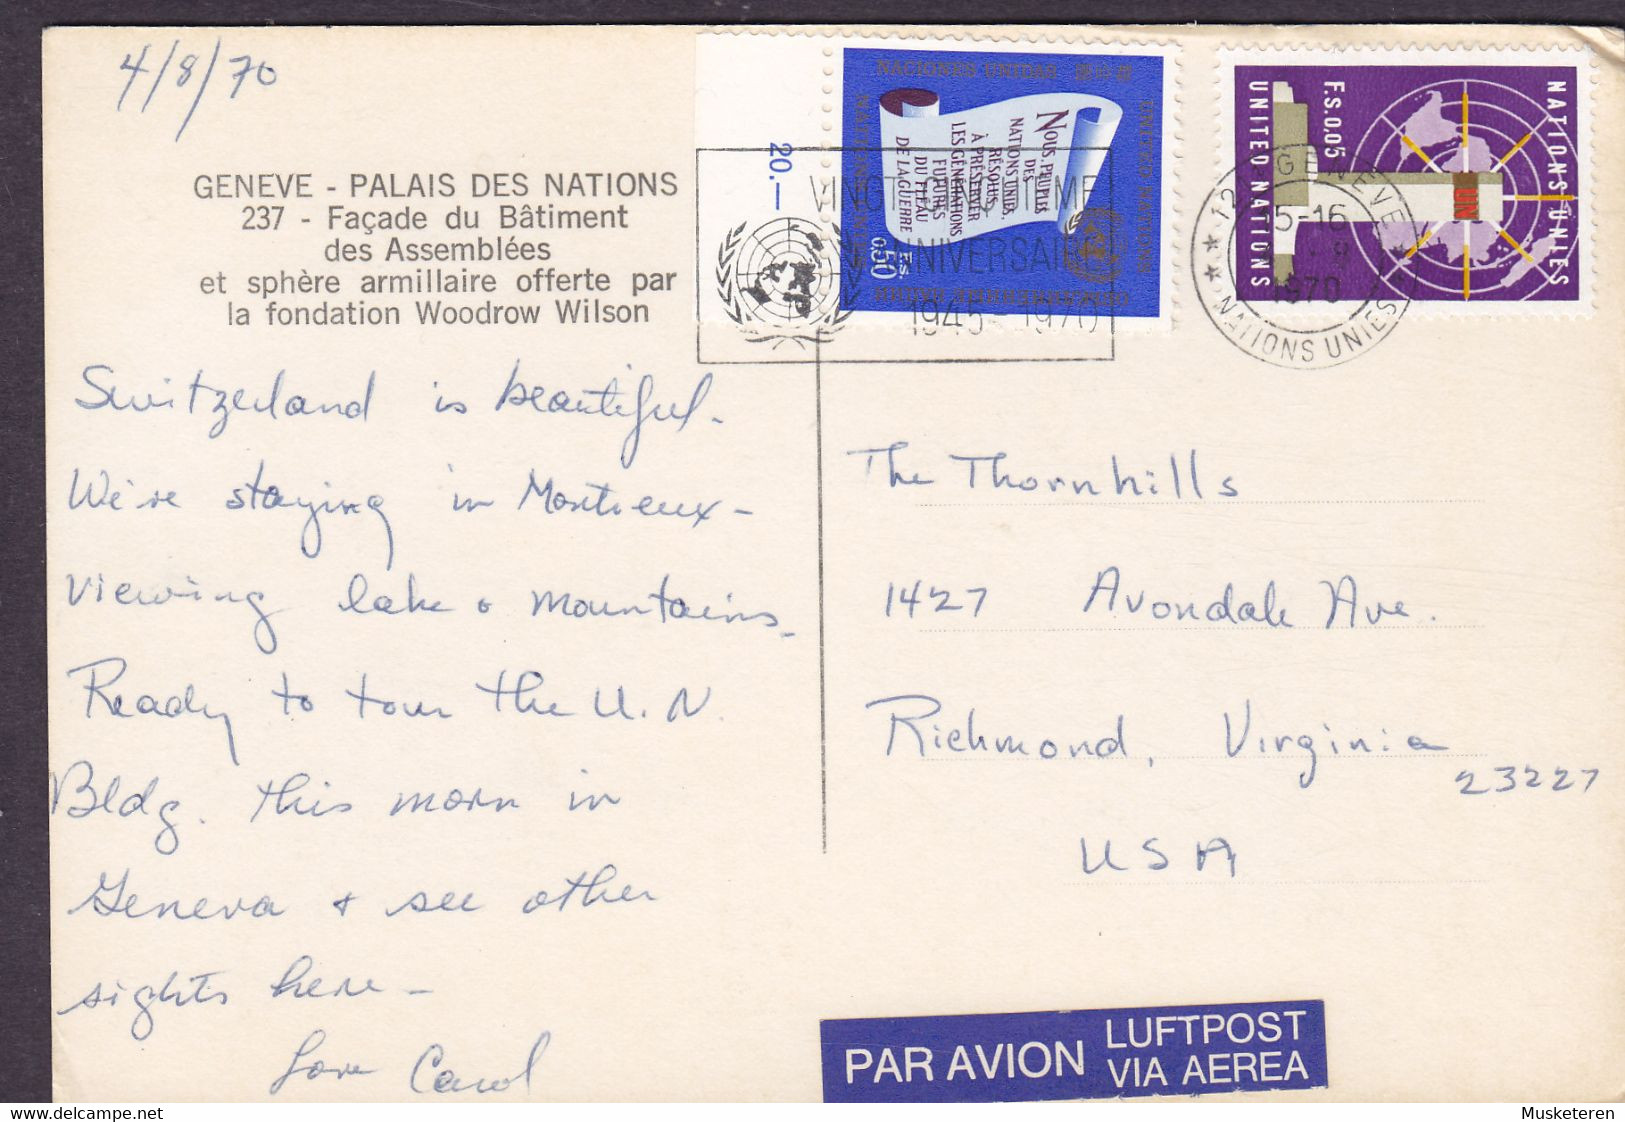 4/8/70
GENEVE - PALAIS DES NATIONS
237 - Façade du Bâtiment
des Assemblées
et sphère armillaire offerte par
la fondation Woodrow Wilson
Switzerland is beautiful.
We're staying in Montreux -
viewing lake & mountains.
Ready to tour the U.N.
Bldg. this morn in
Geneva & see other
sights here -
Love Carol
20.—
NACIONES UNIDAS
UNITED NATIONS
NATIONS UNIES
NOUS, PEUPLES
DES
NATIONS UNIES,
RÉSOLUS
À PRÉSERVER
LES GÉNÉRATIONS
FUTURES
DU FLÉAU
DE LA GUERRE
F.S.
0,50
VINGT-CINQUIÈME
ANNIVERSAIRE
1945 - 1970
NATIONS UNIES
UN
F.S.0,05
UNITED NATIONS
1211 GENÈVE
15-16
1970
NATIONS UNIES
The Thornhills
1427 Avondale Ave.
Richmond, Virginia
23227
USA
PAR AVION
LUFTPOST
VIA AEREA
Musketeren
delcampe.net